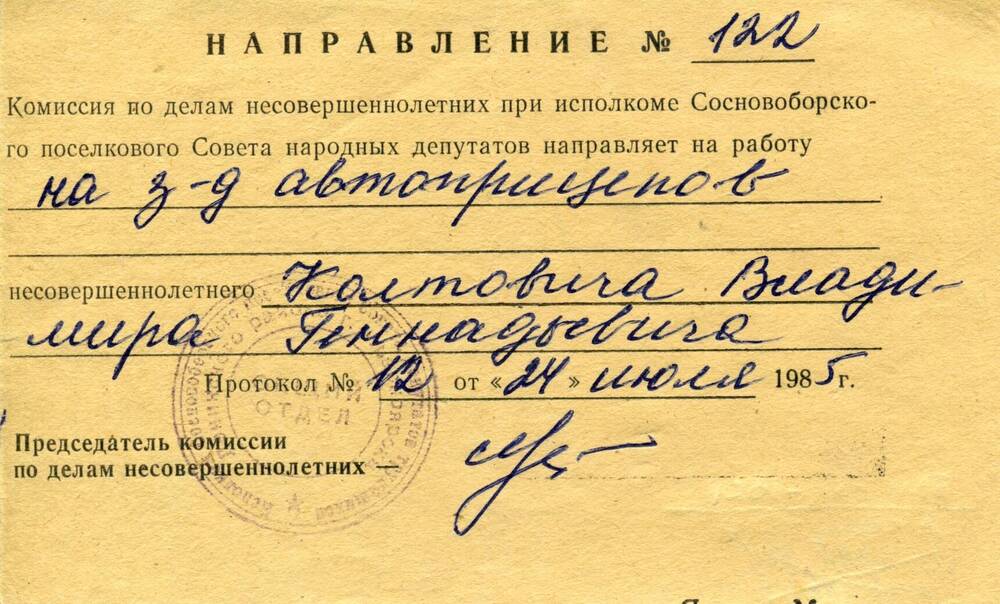 НАПРАВЛЕНИЕ № 122
Комиссия по делам несовершеннолетних при исполкоме Сосновоборско-
го поселкового Совета народных депутатов направляет на работу
на з-д автоприцепов
несовершеннолетнего Колтовича Влади-
мира Геннадьевича
Протокол № 12 от «24» июля 1985 г.
ОТДЕЛ
Председатель комиссии
по делам несовершеннолетних —